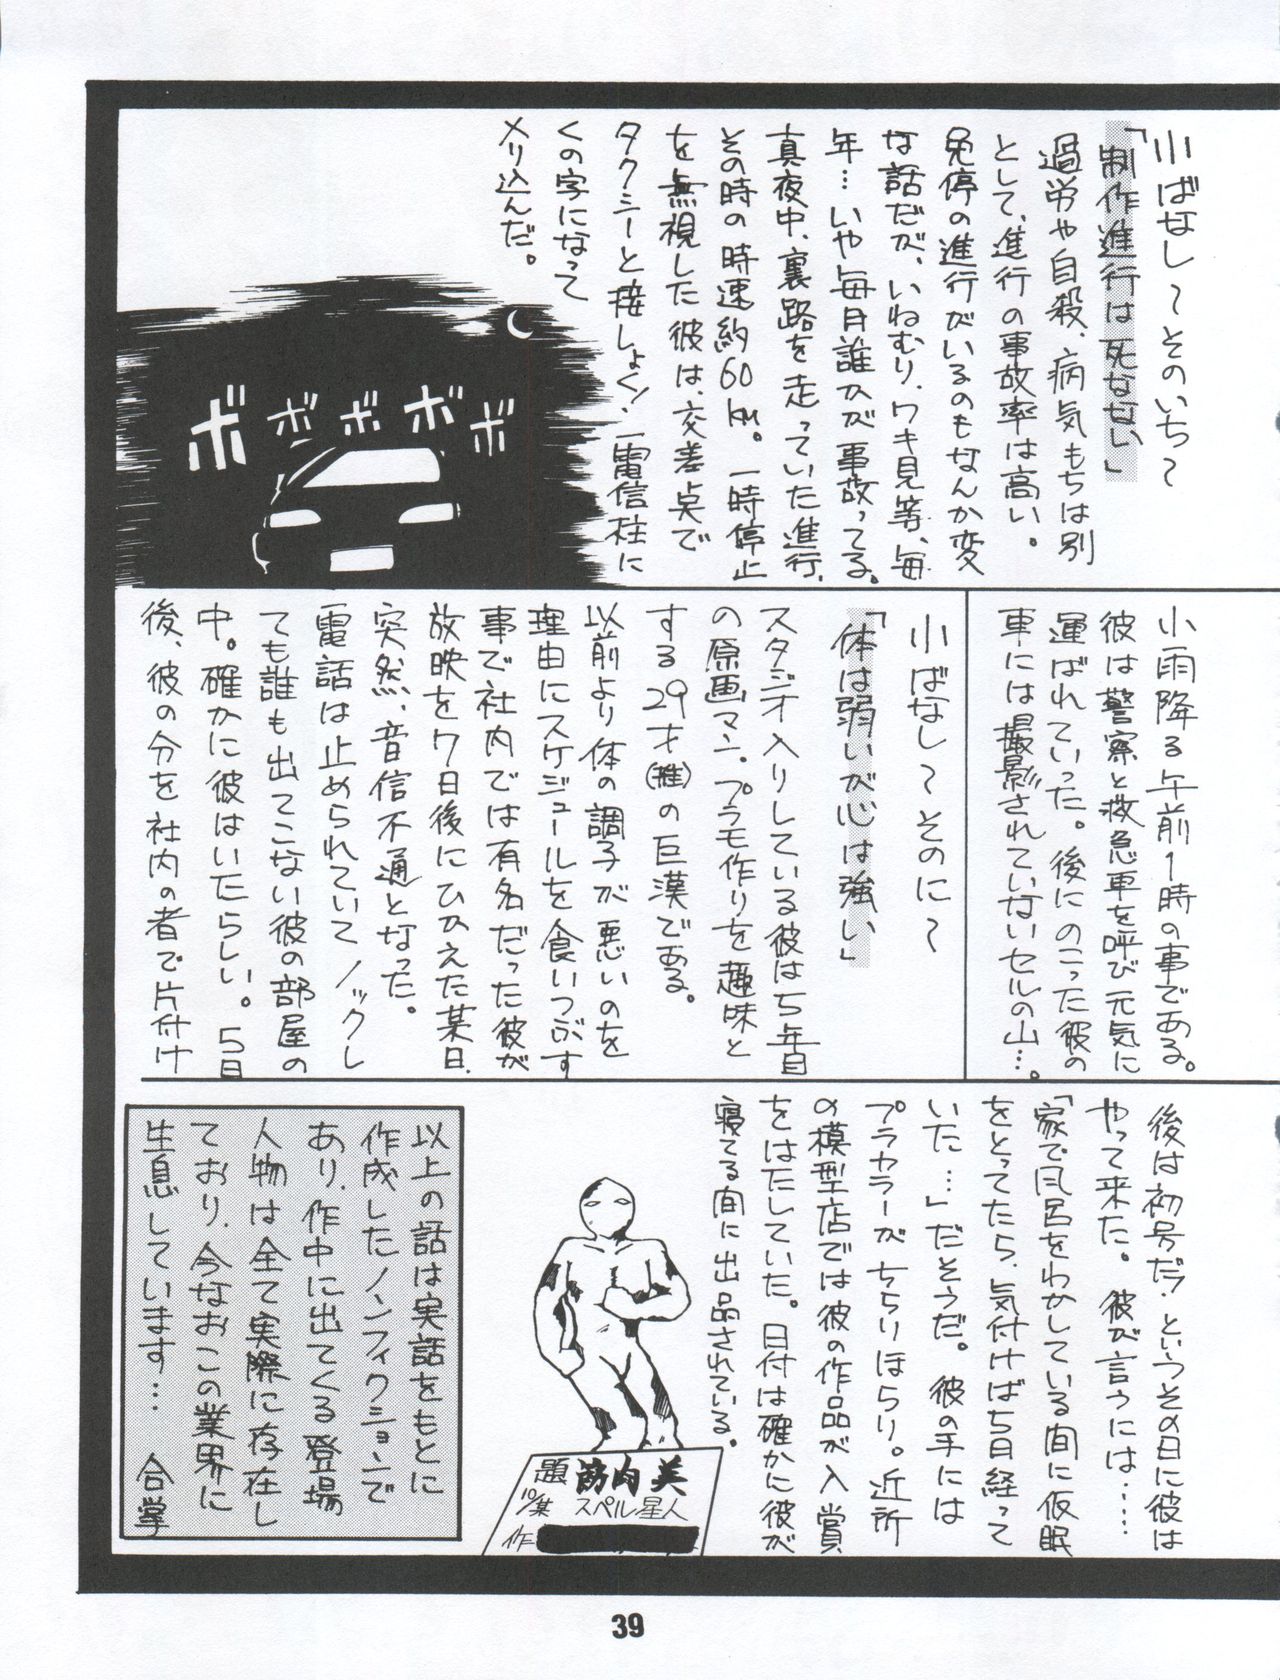 小ばなし〜そのいち〜
「制作進行は死なない」
過労や自殺、病気もちは別
として、進行の事故率は高い。
免停の進行がいるのもなんか変
な話だが、いねむり、ワキ見等、毎
年…いや毎月誰かが事故ってる。
真夜中、裏路を走っていた進行、
その時の時速約60km。一時停止
を無視した彼は、交差点で
タクシーと接しょく!電信柱に
くの字になって
メリ込んだ。
ボボボボボ
小雨降る午前1時の事である。
彼は警察と救急車を呼び元気に
運ばれていった。後にのこった彼の
車には撮影されていないセルの山…。
小ばなし〜そのに〜
「体は弱いが心は強い」
スタジオ入りしている彼は5年目
の原画マン。プラモ作りを趣味と
する29才(推)の巨漢である。
以前より体の調子が悪いのを
理由にスケジュールを食いつぶす
事で社内では有名だった彼が
放映を7日後にひかえた某日、
突然、音信不通となった。
電話は止められていてノックし
ても誰も出てこない彼の部屋の
中。確かに彼はいたらしい。5日
後、彼の分を社内の者で片付け
後は初号だ!というその日に彼は
やって来た。彼が言うには……
「家で風呂をわかしている間に仮眠
をとってたら、気付けば5日経って
いた…」だそうだ。彼の手には
プラカラーがちらりほらり。近所
の模型店では彼の作品が入賞
をはたしていた。日付は確かに彼が
寝てる間に出品されている。
題 筋肉美
10/某 スペル星人
作
以上の話は実話をもとに
作成したノンフィクションで
あり、作中に出てくる登場
人物は全て実際に存在し
ており、今なおこの業界に
生息しています… 合掌
39